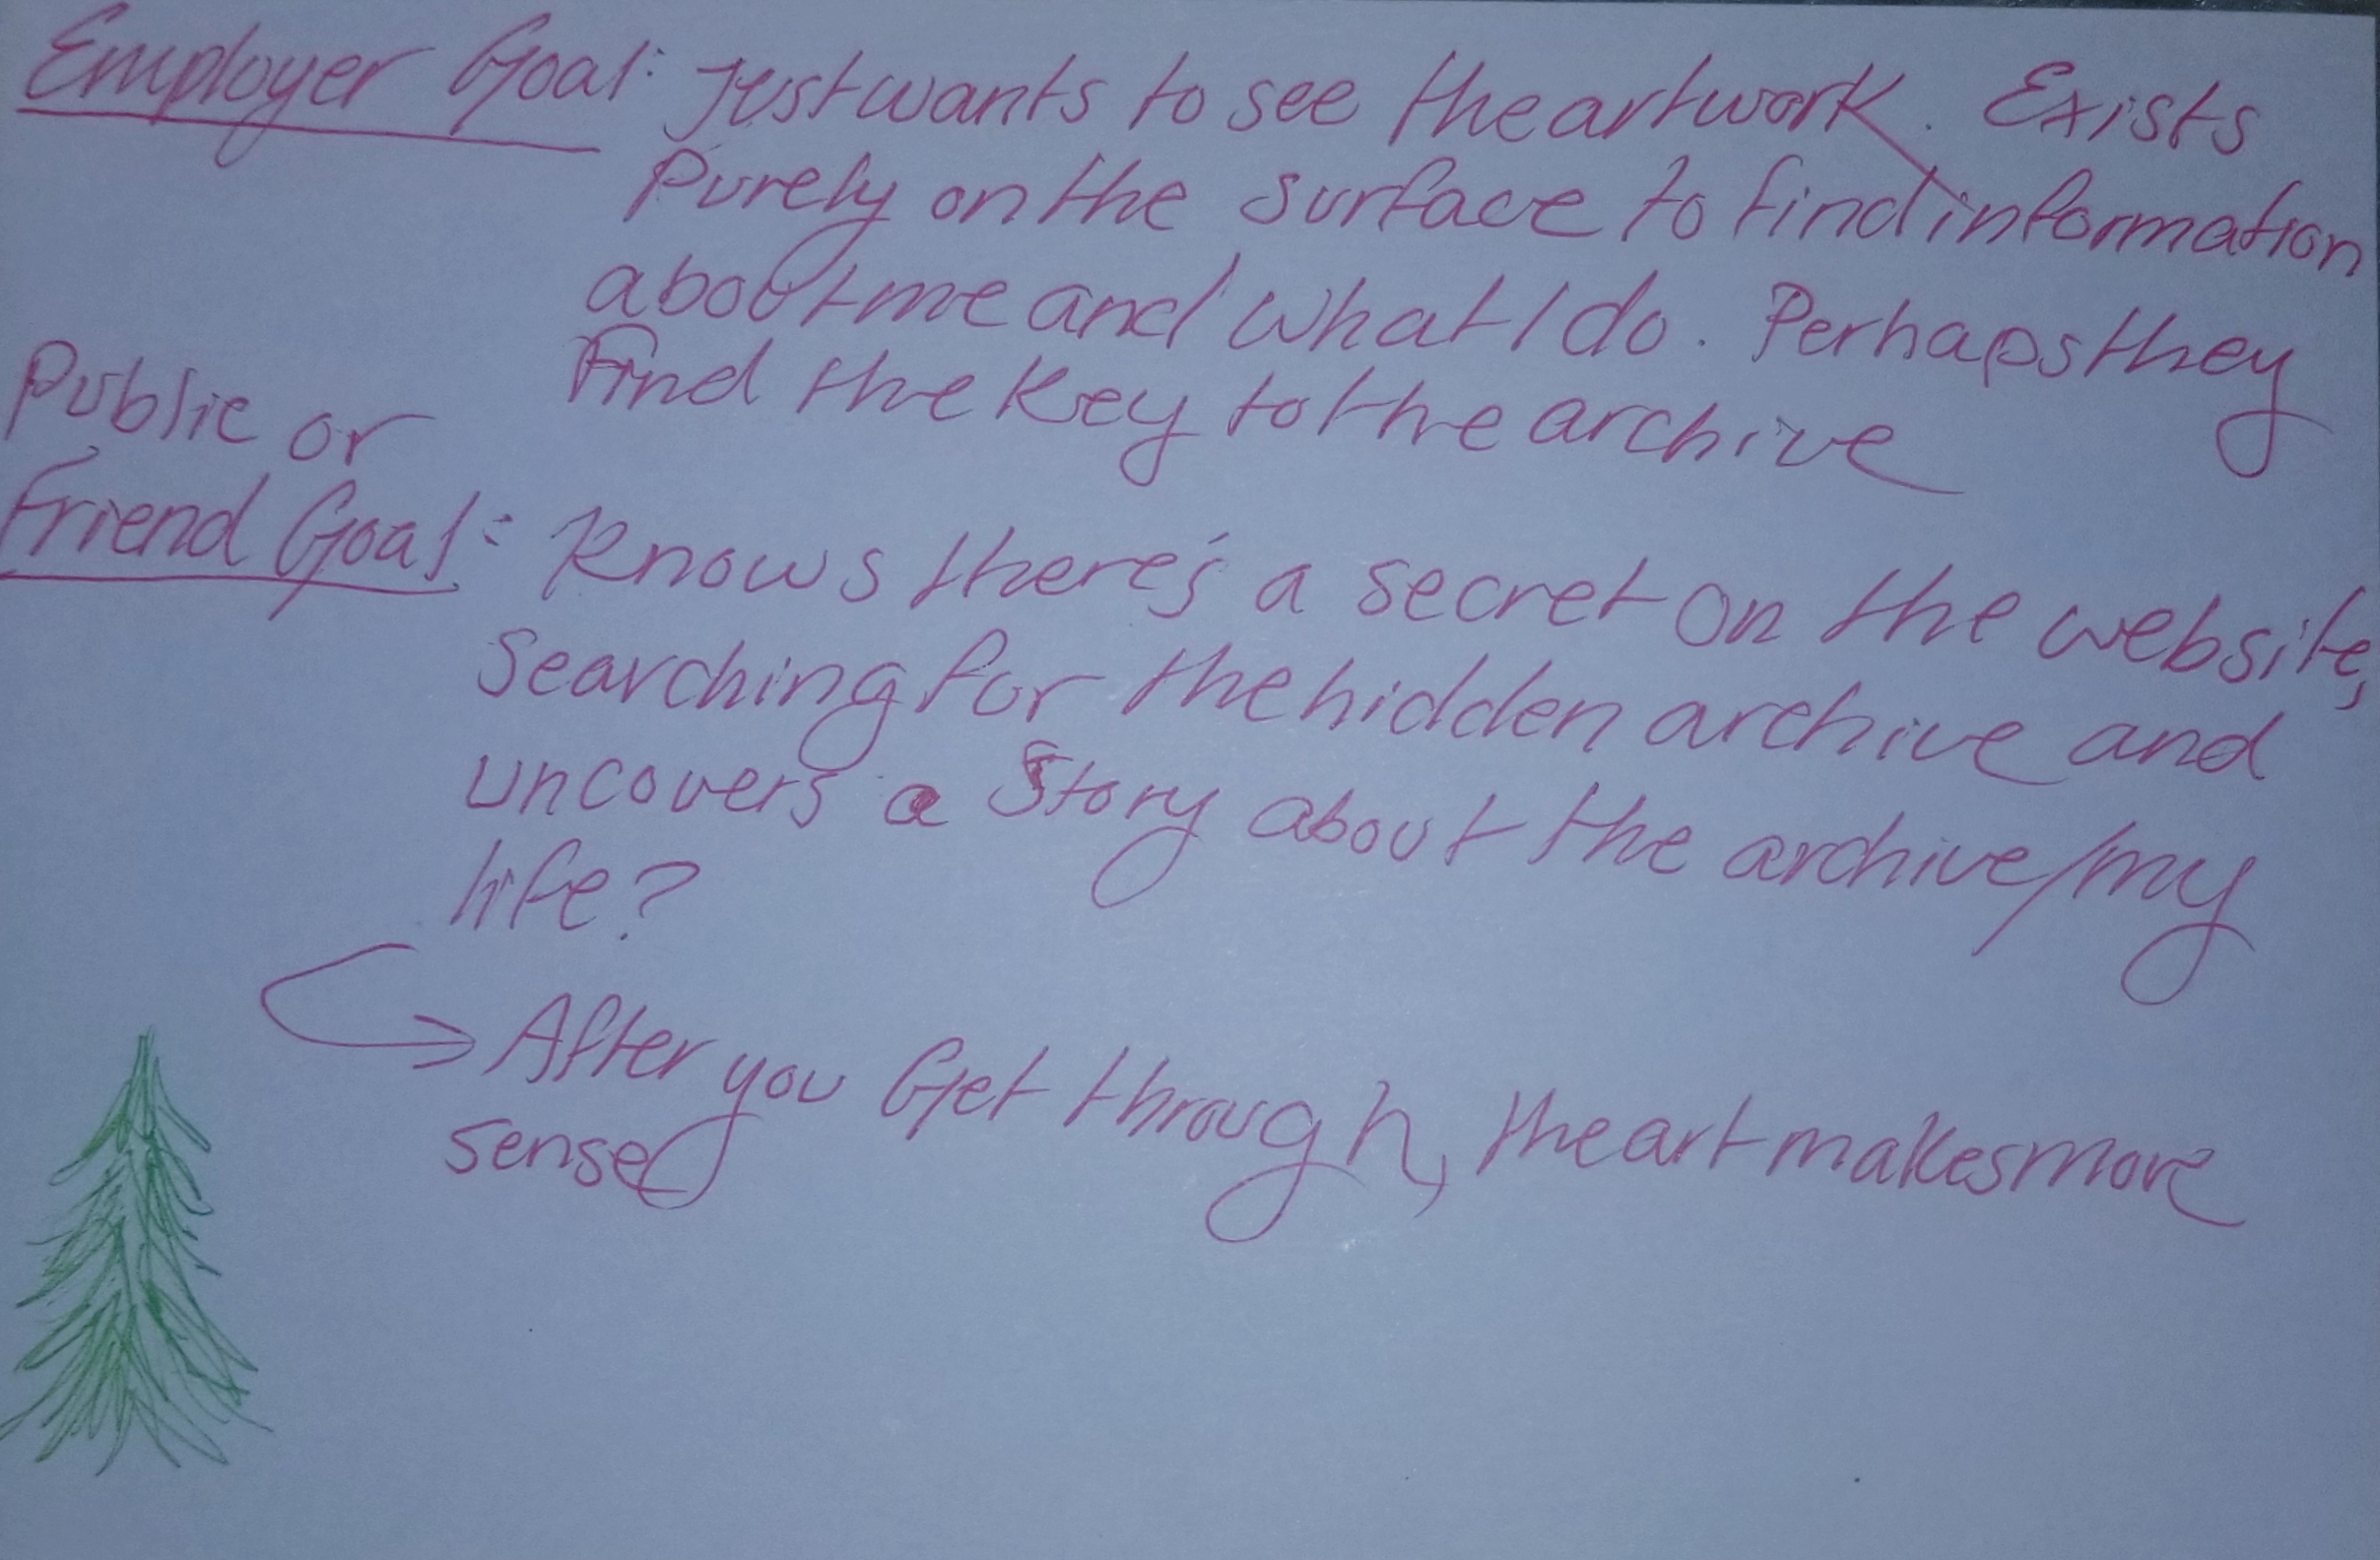 Employer Goal: Just wants to see the artwork. Exists
Purely on the surface to find information
about me and what I do. Perhaps they
Find the key to the archive
Public or
Friend Goal: Knows there's a secret on the website,
Searching for the hidden archive and
uncovers a Story about the archive/my
life?
After you Get through, the art makes more
sense